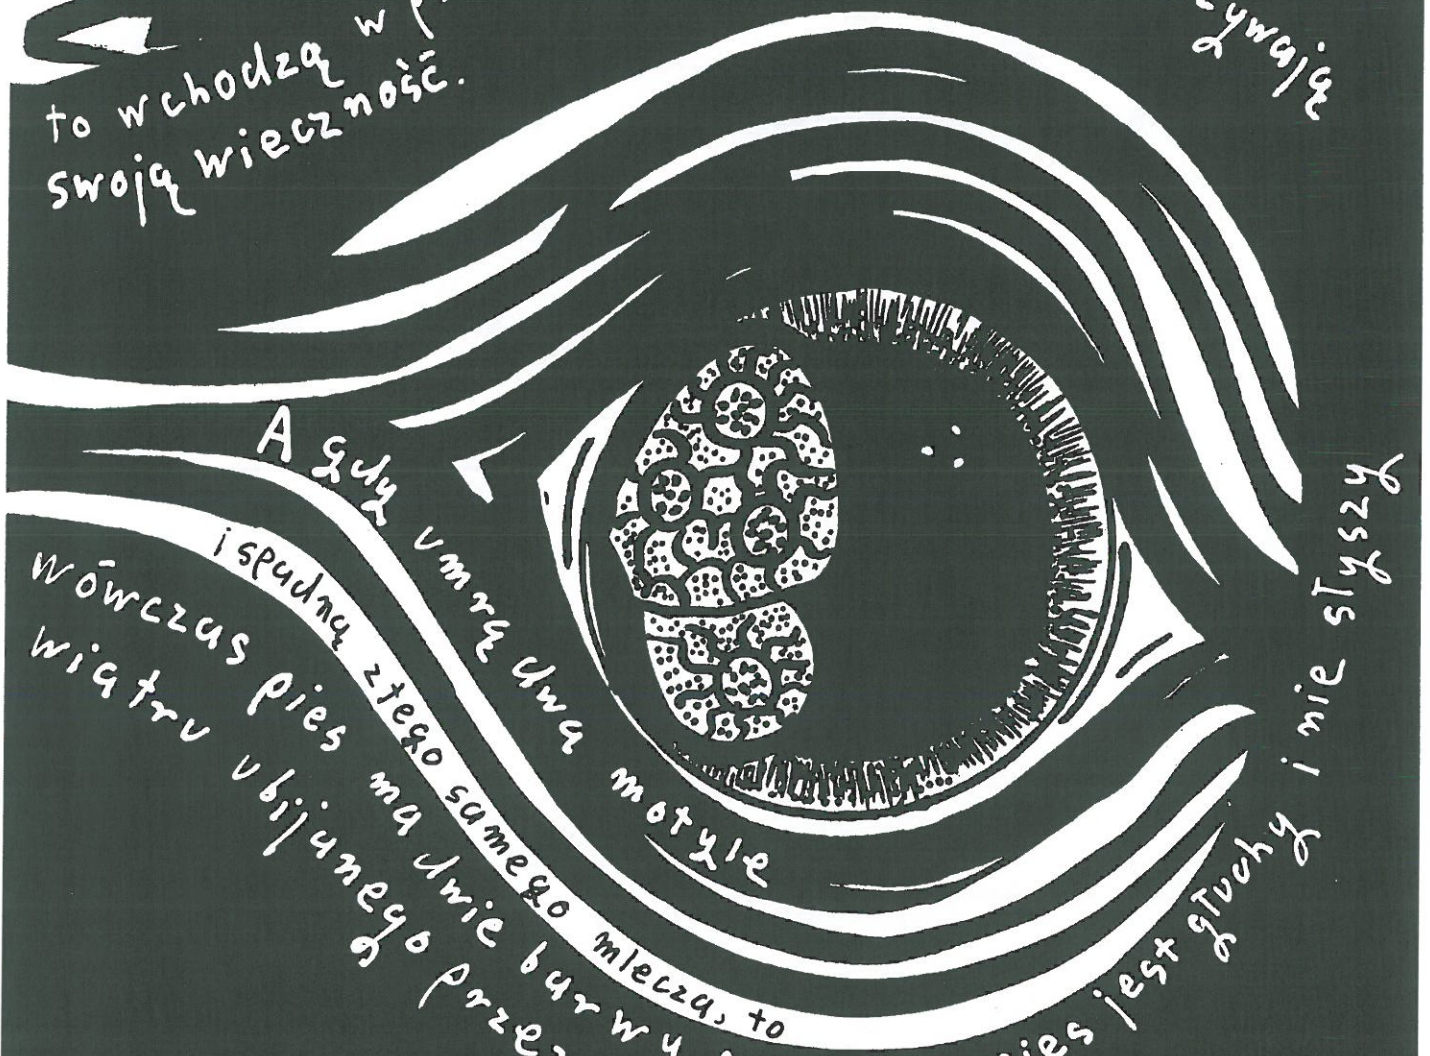 w
to wchodzą
swoją wieczność.
A gdy umrą dwa motyle
i spadną z tego samego mlecza, to
wówczas pies ma dwie barwy
wiatru ubijanego
jest głuchy i nie słyszy